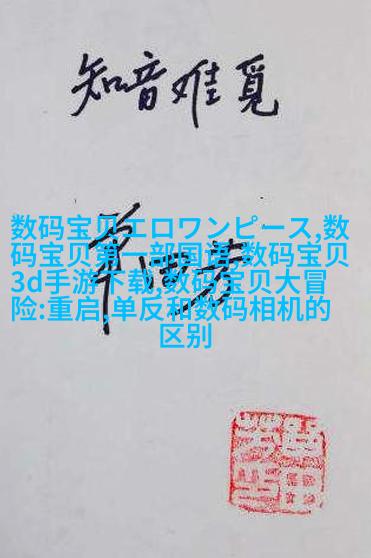 知音难觅
数码宝贝エロワンピース,数
码宝贝第一部国语,数码宝贝
3d手游下载,数码宝贝大冒
险:重启,单反和数码相机的
区别